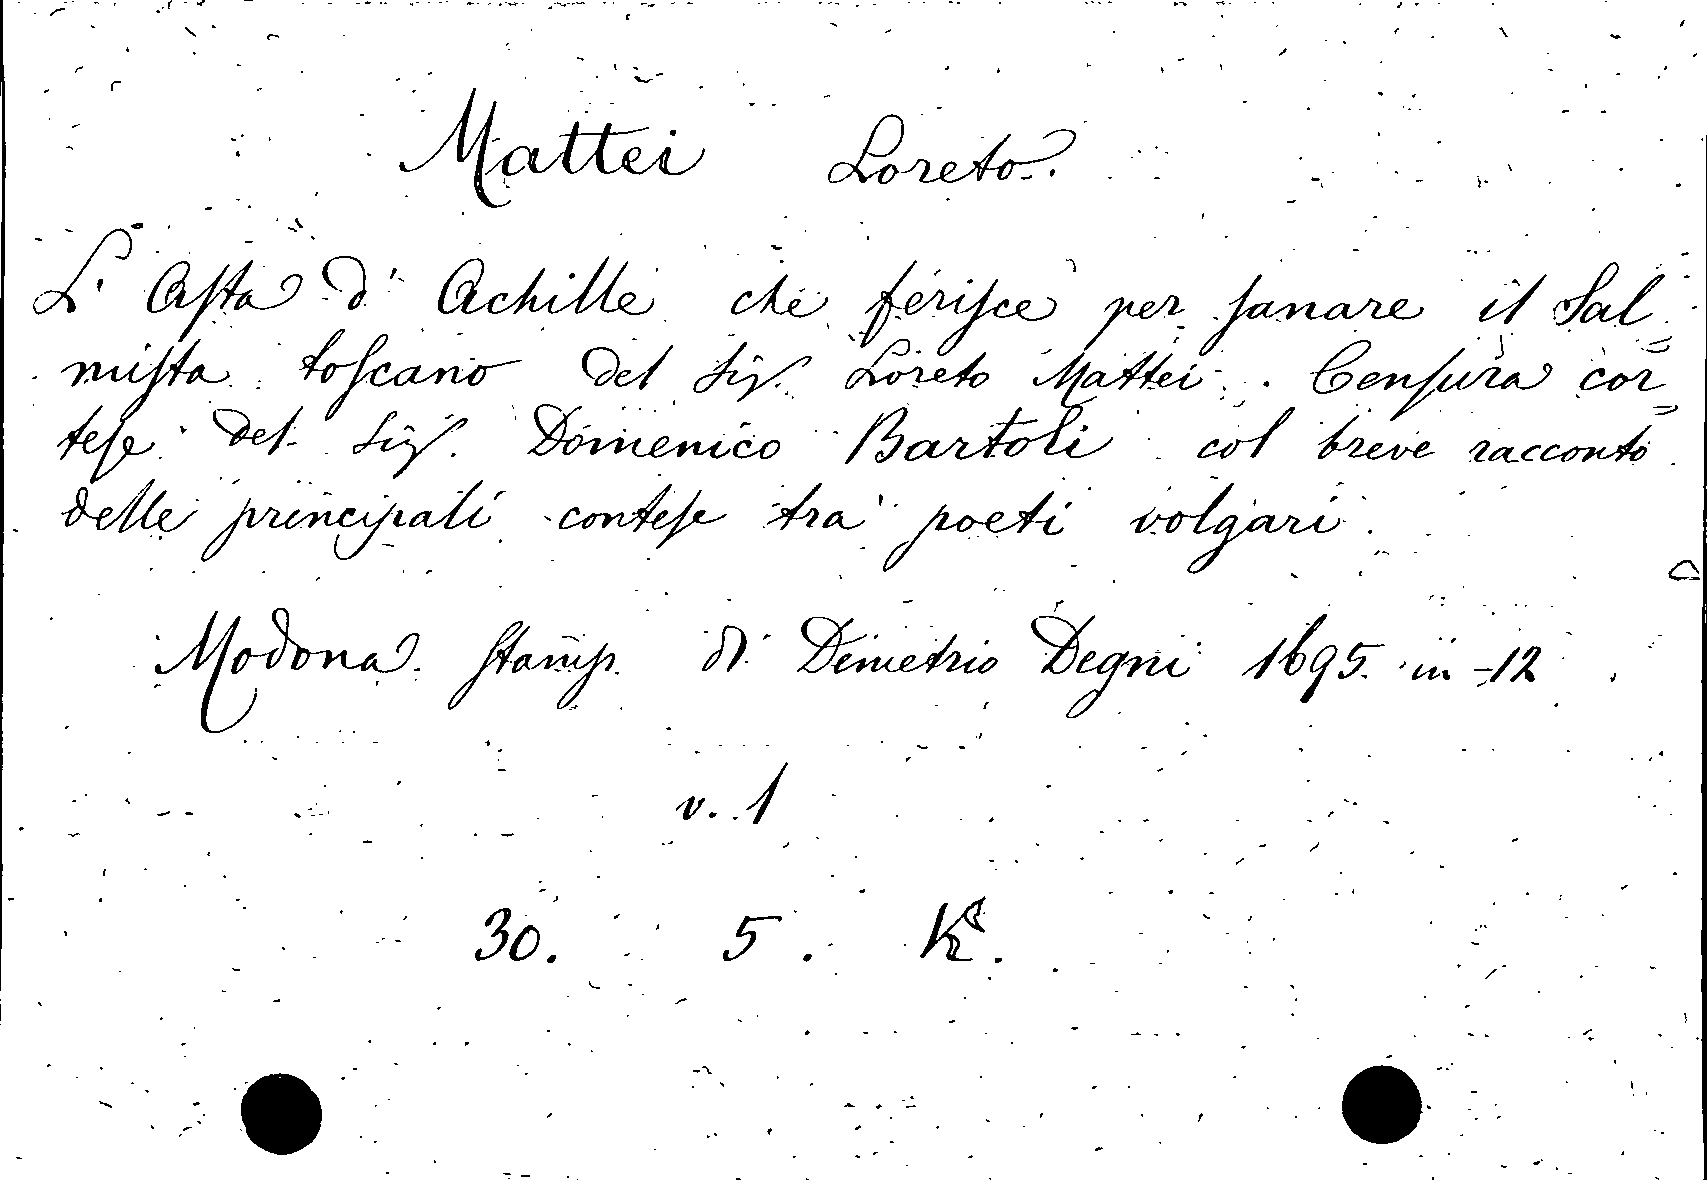 Mattei Loreto.
L' Aſta d' Achille che feriſce per ſanare il Sal=
miſta toſcano del Sig. Loreto Mattei. Cenſura cor=
teſe del Sig. Domenico Bartoli col breve racconto
delle principali conteſe tra poeti volgari.
Modona. Stamp. di Demetrio Degni 1695. in-12
v. 1
30. 5.